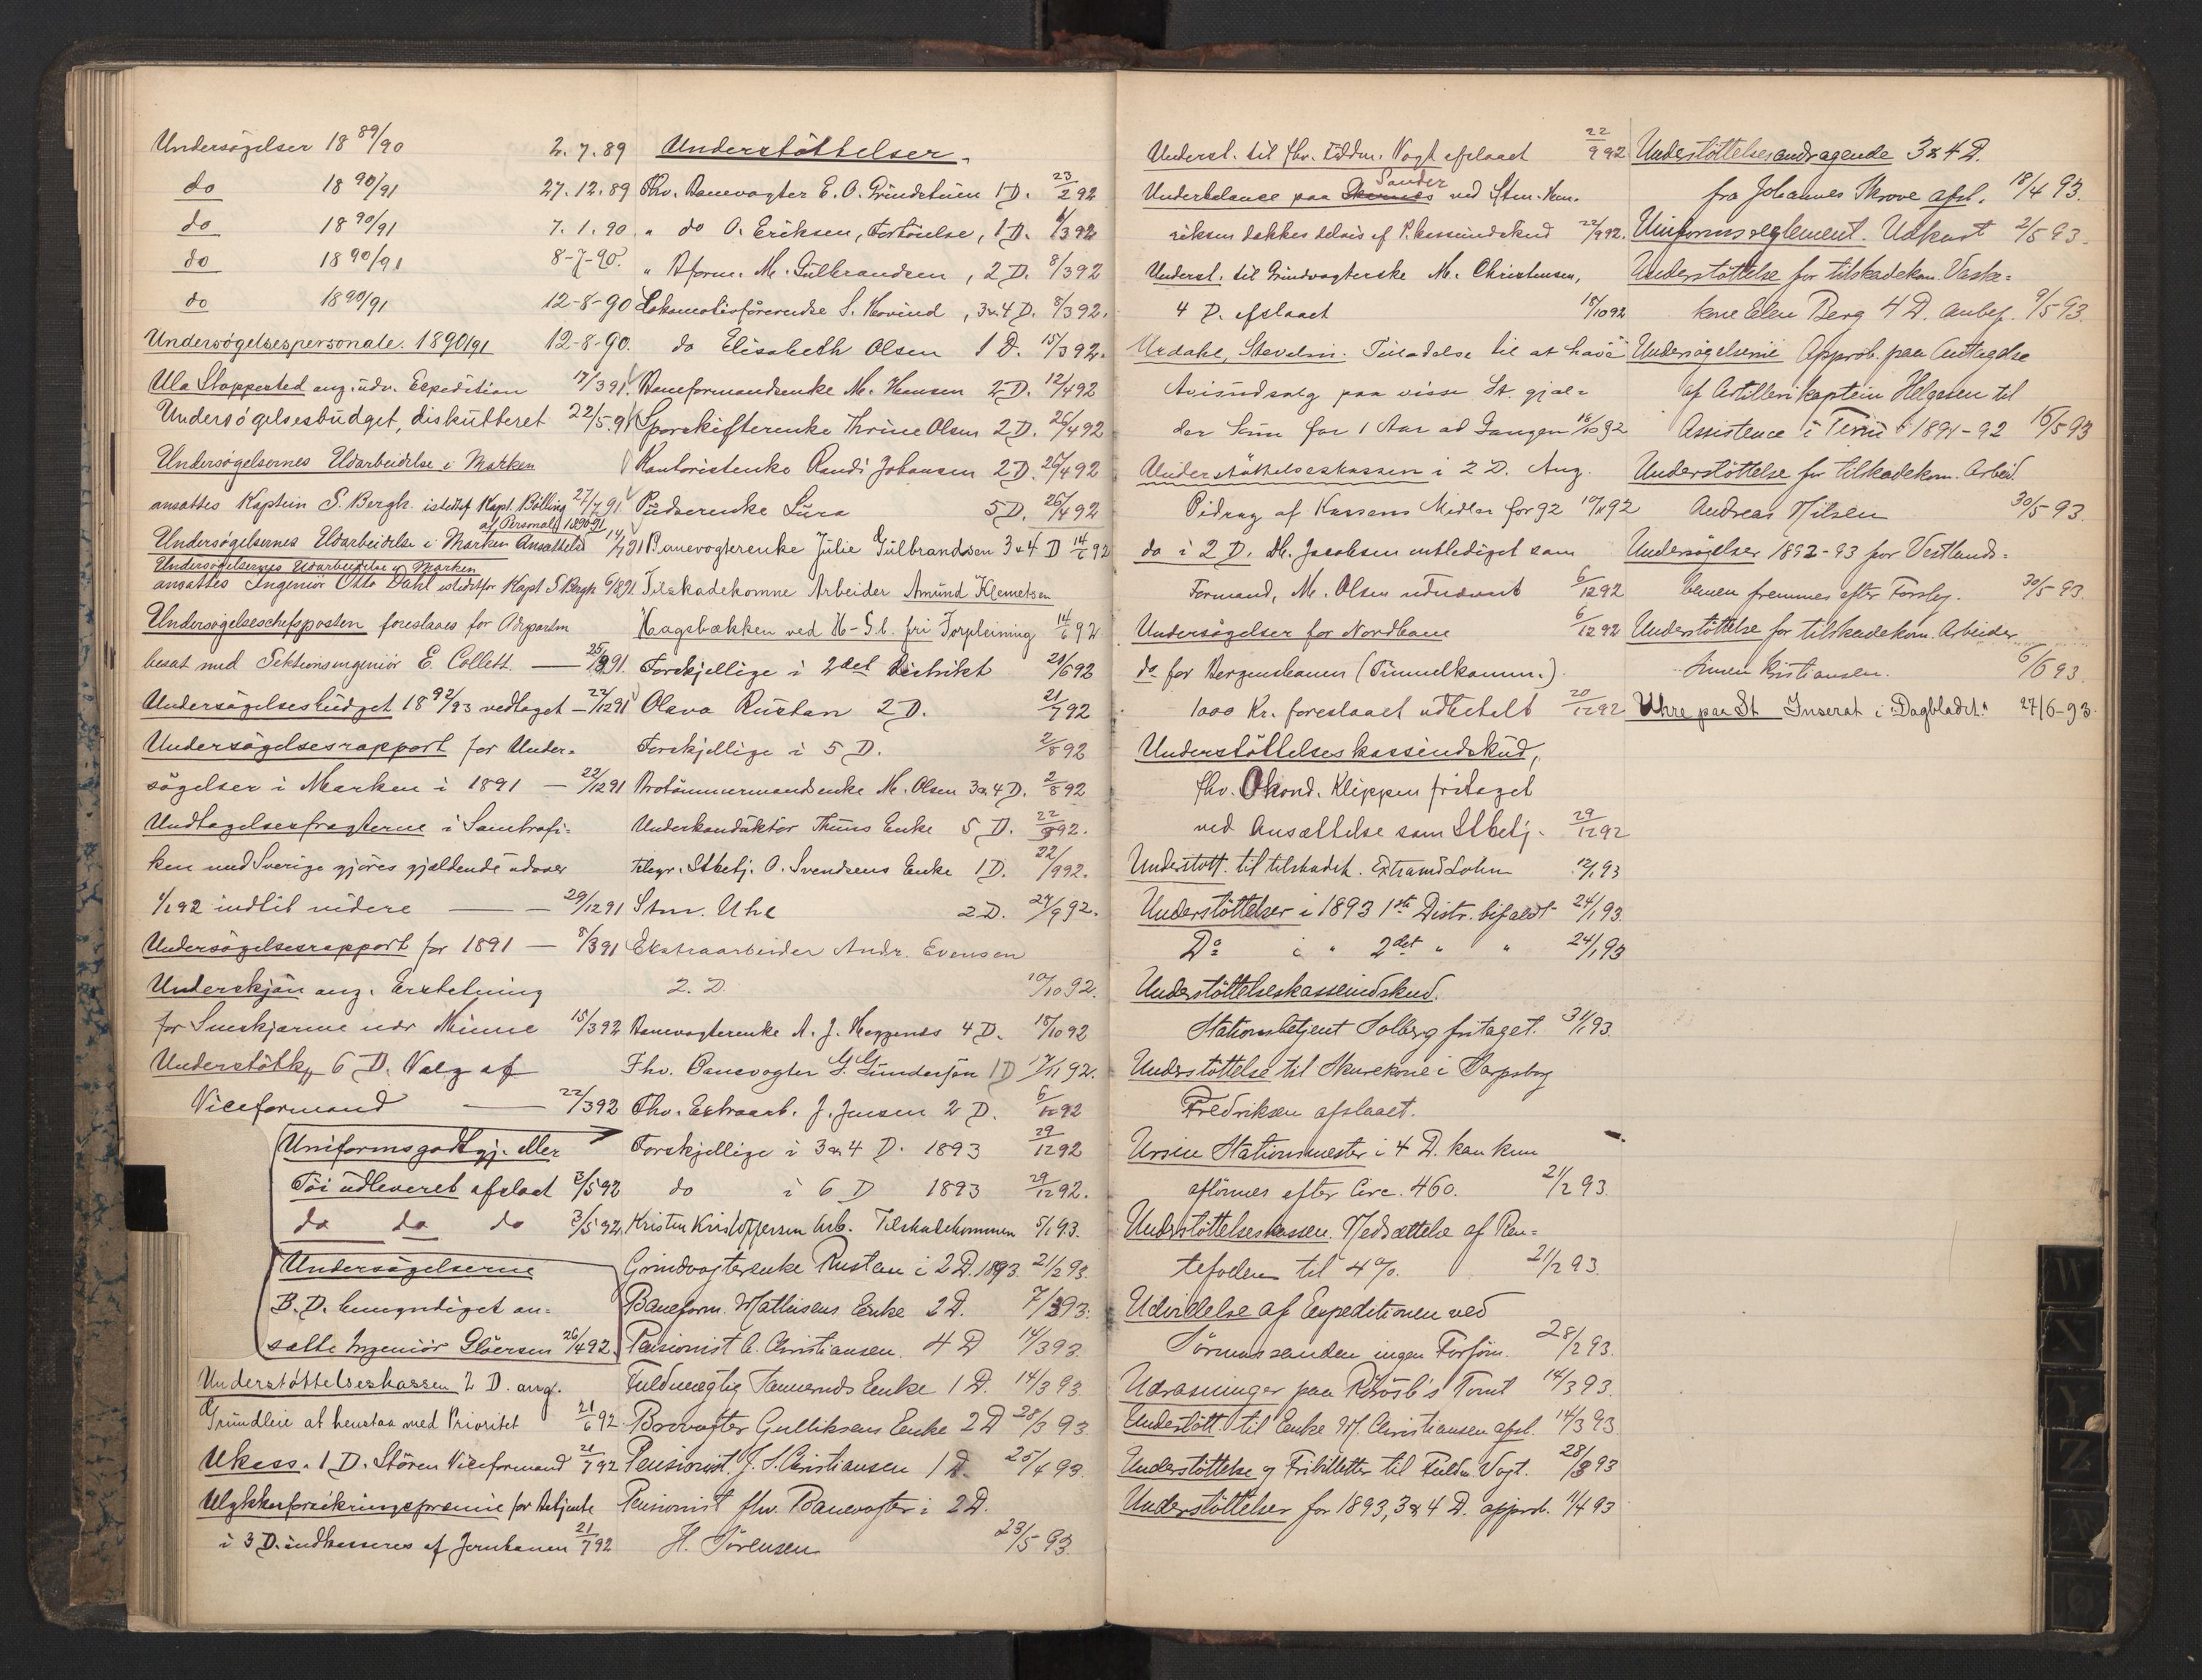 Undersögelser 18 89/90 2.7.89
do 18 90/91 27.12.89
do 18 90/91 7.1.90
do 18 90/91 8-7-90.
do 1890/91 12-8-90
Undersögelsespersonale. 1890/91 12-8-90.
Ula Stoppested ang. udv. Expedition 17/3 91.
Undersögelsesbudget, diskutteret 22/5.91
Undersögelsernes Udarbeidelse i Marken
ansattes Kaptein S. Bergh. istedetf. Kapt. Bölling 27/7 91
af Personalf 1890-91
Undersögelsernes Udarbeidelse i Marken Ansættelse 14/7 91
Undersögelsernes Udarbeidelse i Marken
ansattes Ingeniör Otto Dahl istedetfor Kapt S. Bergh 6/8 91
Undersögelseschefsposten foreslaaes for Adepartm
besat med Sektionsingeniör E. Collett. — 25/8 91.
Undersögelsesbudget 18 92/93 vedtaget — 22/12 91
Undersögelsesrapport for Under-
sögelser i Marken i 1891 — 22/12 91
Undtagelsesfragterne i Samtrafi-
ken med Sverige gjöres gjældende udover
1/1 92 indtil videre — 29/12 91
Undersögelsesrapport for 1891 — 8/3 91
Underskjön ang. Erstatning
for Sneskjærme nær Minne 15/3 92
Understöttk. 6 D. Valg af
Viceformand — 22/3 92
Uniformsgodtgj. eller
Töi udleveret afslaat 3/5 92
do do do 3/5 92
Undersögelserne
B. D. bemyndiget an-
sætte Ingeniör Glöersen 26/4 92.
Understöttelseskassen 2 D. ang.
Grundleie at henstaa med Prioritet 21/6 92
Ukass. 1 D. Stören Viceformand 21/7 92
Ulykkesforsikringspræmie for Betjente
i 3 D. indkasseres af Jernbanen 21/7 92
Understöttelser.
Fhv. Banevogter E. O. Grindstuen 1 D. 23/2 92
" do O. Eriksen, Forhöielse, 1 D. 8/3 92
" Bform. M. Gulbrandsen, 2 D. 8/3 92
Lokomotivförerenke S. Hovind, 3 & 4 D. 8/3 92.
do Elisabeth Olsen 1 D. 15/3 92.
Baneformandsenke M. Hansen 2 D. 12/4 92
Sporskifterenke Thrine Olsen 2 D. 26/4 92
Kontoristenke Randi Johansen 2 D. 26/4 92
Pudserenke Lura 5 D. 26/4 92
Banevogterenke Julie Gulbrandsen 3 & 4 D 14/6 92
Tilskadekomne Arbeider Amund Klemetsen
Hagabækken ved H-G.b. fri Forpleining 14/6 92
Forskjellige i 2det Distrikt 21/6 92
Olava Rustan 2 D. 21/7 92
Forskjellige i 5 D. 2/8 92
Brotömmermandsenke M. Olsen 3 & 4 D. 2/8 92
Underkonduktör Thues Enke 5 D. 22/9 92.
Telegr. Stbetj. O. Svendsens Enke 1 D. 22/9 92.
Stm. Uhe 2 D. 27/9 92.
Ekstraarbeider Andr. Evensen
2. D. 10/10 92.
Banevogterenke A. J. Haggenæs 4 D. 18/10 92
Fhv. Banevogter G. Gundersen 1 D 17/11 92.
Fhv. Extraarb. J. Jensen 2 D. 6/12 92
Forskjellige i 3 & 4 D. 1893 29/12 92
do i 6 D 1893 29/12 92.
Kristen Kristoffersen Arb. Tilskadekommen 5/1 93.
Grindvogterenke Rustan i 2 D. 1893 21/2 93.
Baneform. Mathisens Enke 2 D. 7/3 93.
Pensionist C. Christiansen. 4 D 14/3 93.
Fuldmægtig Tannernds Enke 1 D. 14/3 93.
Brovogter Gulliksens Enke 2 D 28/3 93
Pensionist J. S. Christiansen 1 D. 25/4 93.
Pensionist fhv. Banevogter i 2 D.
H. Sörensen 23/5 93.
Underst. til fhv. Fuldm. Vogt afslaaet 22/9 92
Sander
Underbalance paa ved Stm. Hen-
riksen dækkes delvis af P.kasseindskud 22/9 92.
Underst. til Grindvogterske M. Christensen,
4 D. afslaaet 18/10 92
Urdahl, Stevelin. Tilladelse til at have
Avisudsalg paa visse St. gjæl-
der kun for 1 Aar ad Gangen 18/10 92
Understöttelseskassen i 2 D. Ang.
Bidrag af Kassens Midler for 92 10/11 92
do i 2 D. Bl. Jacobsen entlediget som
Formand, M. Olsen udnævnt 6/12 92
Undersögelser for Nordbane 6/12 92
do for Bergensbanen (Tunnelkomm.)
1000 Kr. foreslaaet udbetalt 20/12 92
Understöttelseskasseindskud,
fhv. Ökond. Klippen fritaget
ved Ansættelse som Stbetj. 29/12 92
Understött. til tilskadek. Extramd Lohn 12/1 93
Understöttelser i 1893 1ste Distr. bifaldt 24/1 93
Do i " 2det " " 24/1 93
Understöttelseskasseindskud.
Stationsbetjent Solberg fritaget. 31/1 93.
Understöttelse til Skurekone i Sarpsborg
Fredriksen afslaaet.
Ursin Stationsmester i 4 D. kan kun
aflönnes efter Circ. 460. 21/2 93.
Understöttelseskassen. Nedsættelse af Ren-
tefoden til 4%. 21/2 93.
Udvidelse af Expeditionen ved
Sörmarssanden ingen Forföin. 28/2 93.
Udrasninger paa Rörosb's Tomt 14/3 93.
Understött. til Enke M. Christiansen afsl. 14/3 93
Understöttelse og Fribilletter til Fuldm. Vogt. 28/3 93
Understöttelser for 1893, 3 & 4 D. approb. 11/4 93
Understöttelsesandragende 3 & 4 D.
fra Johannes Skrove afsl. 18/4 93.
Uniformsreglement. Udkast 2/5 93.
Understöttelse for tilskadekom. Vaske-
kone Elen Berg 4 D. anbef. 9/5 93.
Undersögelserne Approb. paa Antagelse
af Artillerikaptein Helgesen til
Assistence i Terræn 1891-92 16/5 93
Understöttelse for tilskadekom. Arbeid.
Andreas Nilsen 30/5 93.
Undersögelser 1892-93 for Vestlands-
banen fremmes efter Forslag. 30/5 93.
Understöttelse for tilskadekom. Arbeider
Simen Kristiansen. 6/6 93.
Uhre paa St Inserat i "Dagbladet." 27/6-93.